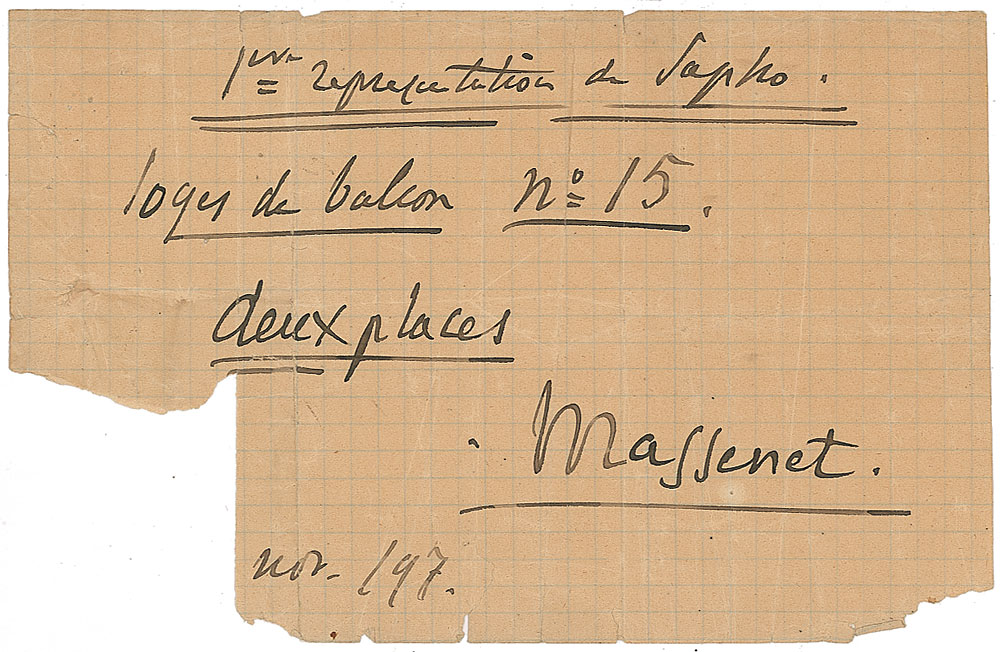 1ère représentation de Sapho.
loges de balcon nº 15.
deux places
Massenet.
nov. /97.